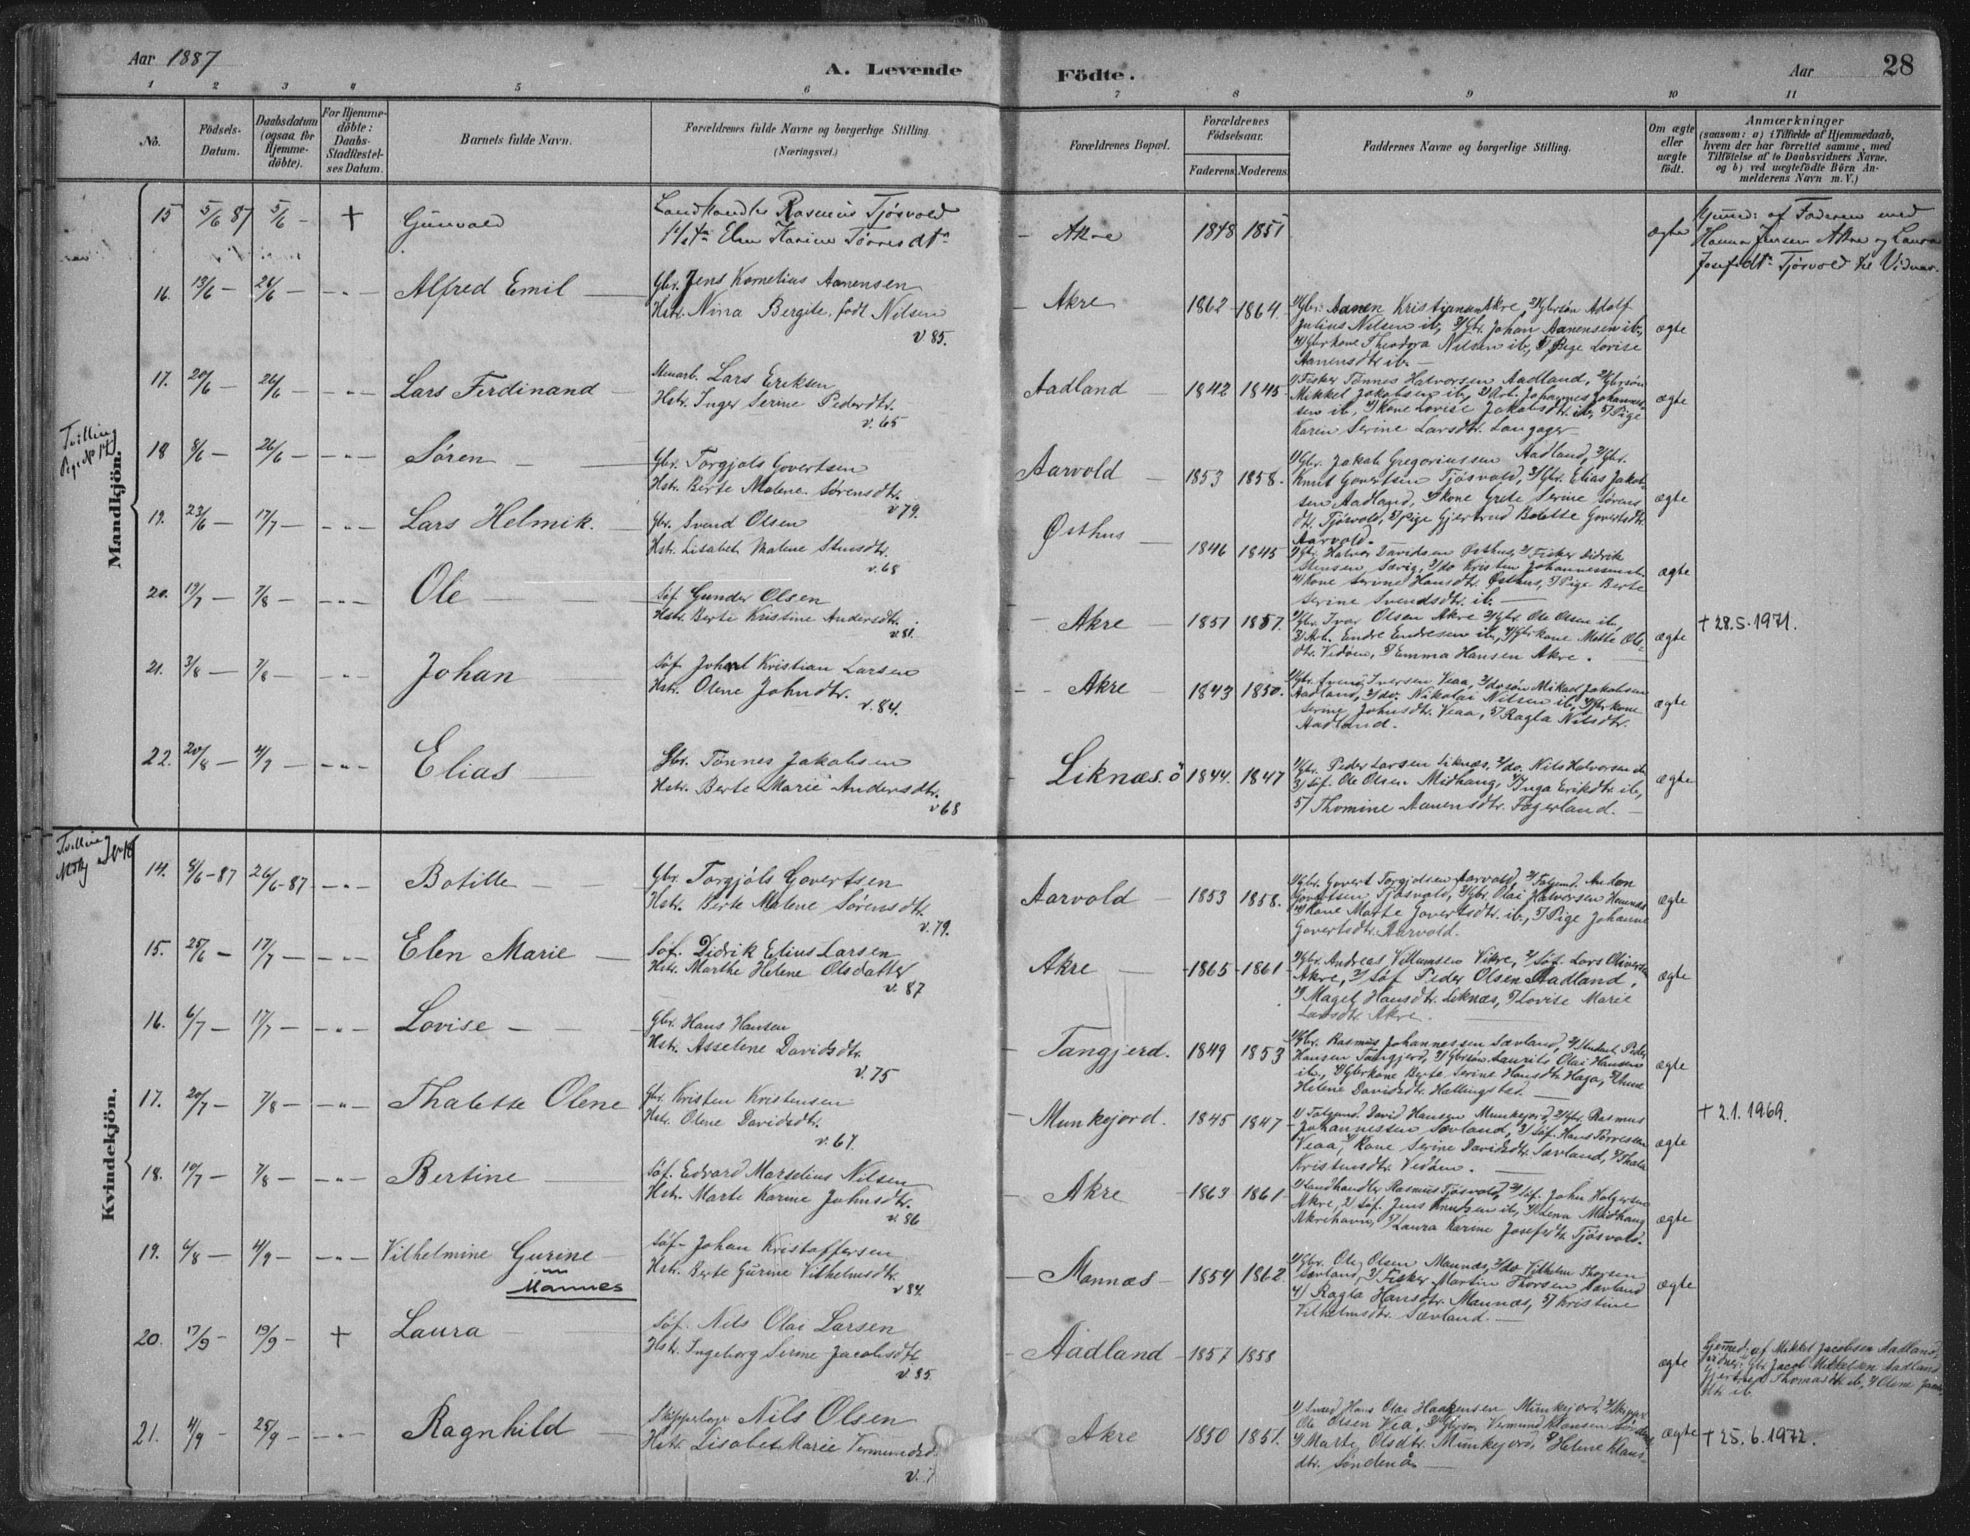 Aar 1887
A. Levende
Födte.
Aar
28
1 2 3 4 5 6 7 8 9 10 11
No.
Födsels-
Datum.
Daabsdatum
(ogsaa for
Hjemme-
döbte).
For Hjemme-
döbte:
Daabs-
Stadfæstel-
ses Datum.
Barnets fulde Navn.
Forældrenes fulde Navne og borgerlige Stilling.
(Næringsvei.)
Forældrenes Bopæl.
Forældrenes
Födselsaar.
Faderens. Moderens.
Faddernes Navne og borgerlige Stilling.
Om ægte
eller
uægte
födt.
Anmærkninger
(saasom: a) i Tilfælde af Hjemmedaab,
hvem der har forrettet samme, med
Tilföielse af to Daabsvidners Navne,
og b) ved uægtefödte Börn An-
melderens Navn m. V.)
Mandkjön.
15 5/6 87 5/6 – + Gunvald
Landhandler Rasmus Tjøsvold
Elen Karine Torresdtr
– Akre 1848 1851 ægte
Hjemd: af Faderen med
Hanna Jensen Akre og Laura
Josefsdtr Tjøsvold til Vidner.
16. 13/6 – 26/6 – – " – Alfred Emil
Gbr. Jens Kornelius Aanensen
Hstr. Nina Bergite, født Nilsen
v 85.
– Akre 1862 – 1864.
1/ Gbr: Aanen Kristiansen Akre, 2/ Gbrsøn Adolf
Julius Nilsen ib, 3/ Gbr. Johan Aanensen ib,
4/ Gbrkone Theodora Nilsen ib, 5/ Pige Lovise
Aanensdtr ib. –
ægte
17. 20/6 – 26/6 – – " – Lars Ferdinand
Lars Eriksen
Hstr. Inger Serine Pedersdtr.
v. 65
Aadland – 1842 – 1845
1/ Fisker Tönnes Halvorsen Aadland, 2/ Gbrsøn
Mikkel Jakobsen ib, 3/ Arb. Johannes Johannes-
sen ib, 4/ Kone Lovise Jakobsdtr. ib, 5/ Pige
Karen Serine Larsdtr. Langager –
ægte
Tvilling
Pige No 14
18 8/6 – 26/6 – – " – Søren
Gbr. Torgjols Govertsen
Hstr. Berte Malene Sørensdtr.
v 79.
Aarvold – 1853 1858.
1/ Gbr. Jakob Gregoriussen Aadland, 2/ Gbr.
Knut Govertsen Tjøsvold, 3/ Gbr. Elias Jakob-
sen Aadland, 4/ Kone Grete Serine Sørens
dtr. Tjøsvold, 5/ Pige Gjertrud Bolette Govertsdtr.
Aarvold.
ægte
19. 23/6 – 17/7 – – " – Lars Helmik.
Gbr. Svend Olsen
Hstr. Lisabet Malene Stensdtr.
v. 68
Østhus – 1846 1845
1/ Gbr. Halvor Davidsen Østhus, 2/ Fisker Didrik
Stensen Sævig, 3/ do Kristen Johannessen ib.
4/ Kone Serine Hansdtr. Østhus, 5/ Pige Berte
Serine Svendsdtr. ib. –
ægte
20. 19/7 – 7/8 – – " – Ole
Søf. Gunder Olsen
Hstr. Berte Kristine Andersdtr.
v. 81.
– Akre – 1851 1857.
1/ Gbr. Ivar Olsen Akre 2/ Gbr. Ole Olsen ib,
3/ Arb. Endre Endresen ib, 4/ Gbrkone Mette Ols-
dtr. Vedøen, 5/ Emma Hansen Akre. –
ægte
+ 28.5.1971.
21. 3/8 – 7/8 – – " – Johan
Søf. Johan Kristian Larsen
Hstr. Olene Johnsdtr.
v. 84.
– Akre – 1843 1850.
Iversen Veaa, 2/ do søn Mikal Jakobsen
Aadland, 3/ do. Nikolai Nilsen ib, 4/ Gbr kone
Serine Johnsdtr. Veaa, 5/ Ragla Nilsdtr.
Aadland.
ægte
22. 20/8 – 4/9 – – " – Elias
Gbr. Tönnes Jakobsen
Hstr. Berte Marie Andersdtr.
v 68
– Liknæs. ö 1844. 1847
1/ Gbr. Peder Larsen Liknæs, 2/ do. Nils Halvorsen ib
3/ Søf. Ole Olsen Midhaug, 4/ Inga Eriksdtr. ib,
5/ Thomine Aanensdtr. Fagerland. –
ægte
Kvindekjön.
Tvilling
14. 8/6 – 87 26/6 – 87 – " – Botille
Gbr. Torgjols Govertsen
Hstr. Berte Malene Sørensdtr.
v. 79.
Aarvold – 1853 1858.
1/ Gbr. Govert Torgjolsen Aarvold, 2/
Govertsen Tjøsvold, 3/ Gbr. Olai Halvorsen Hemnæs
4/ Kone Marte Govertsdtr. ib, 5/ Pige Johanne
Govertsdtr. Aarvold.
ægte
15. 25/6 – 17/7 – – " – Elen Marie
Søf. Didrik Elius Larsen
Hstr. Marthe Helene Olsdatter
v. 87
Akre – 1865 – 1861
1/ Gbr. Andreas Villumsen Vikre, 2/ Søf. Lars Olivers.
Akre, 3/ Søf. Peder Olsen Aadland,
4/ Magel Hansdtr. Liknæs, 5/ Lovise Marie
Larsdtr. Akre.
ægte
16. 6/7 – 17/7 – – " – Lovise
Gbr. Hans Hansen
Hstr. Asselene Davidsdtr.
v. 75
– Tangjerd. 1849 1853
1/ Gbr. Rasmus Johannessen Sævland, 2/ Student Peder
Hansen Tangjerd, 3/ Gbrsøn Laurits Olai Hansen
ib., 4/ Gbrkone Berte Serine Hansdtr. Haga, 5/
Helene Davidsdtr. Hellingstad. –
ægte
17. 20/7 – 7/8 – – " – Thalette Olene
Gbr. Kristen Kristensen
Hstr. Olene Davidsdtr.
v. 67
– Munkejord. 1845 1847
1/ David Hansen Munkejord, 2/ Gbr. Rasmus
Johannessen Sævland, 3/ Søf. Hans Torressen
Veaa, 4/ Kone Serine Davidsdtr. Sævland, 5/ Thala
Kristensdtr. Vedøen. –
ægte
+ 2.1.1969.
18. 10/7 – 7/8 – – " – Bertine
Søf. Edvard Marselius Nilsen
Hstr. Marte Karine Johnsdtr.
v. 86
– Akre – 1863 1861
1/ Landhandler Rasmus Tjøsvold, 2/ Søf. John Holgersen
Akre, 3/ Søf. Jens Knutsen ib, 4/ Lena Midhaug
Akrehavn, 5/ Laura Karine Josefsdtr Tjøsvold.
ægte
19. 6/8 – 4/9 – – " – Vilhelmine Gurine
Mannes
Søf. Johan Kristoffersen
Hstr. Berte Gurine Vilhelmsdtr.
v 84.
– Mannæs – 1854 1862
1/ Gbr. Ole Olsen Mannæs, 2/ do Vilhelm Thorsen
Sævland, 3/ Fisker Martin Thorsen Sævland
4/ Ragla Hansdtr. Mannæs, 5/ Kristine
Vilhelmsdtr. Sævland. –
ægte
20. 17/9 – 19/9 – + Laura
Søf. Nils Olai Larsen
Hstr. Ingeborg Serine Jacobsdtr.
v. 85.
– Aadland – 1857 1858
ægte
Hjemd. af Mikkel Jacobsen Aadland,
Vidner: Gbr. Jacob Mikkelsen Aadland
Gjertrud Thomasdtr. ib, Olene
dtr. ib.
21. 4/9 – 25/9 – – " – Ragnhild
Nils Olsen
Hstr. Lisabet Marie Vermundsd.
v. 7
– Akre 1850 1851.
1/ Smed Hans Olai Haakensen Munkejord,
Ole Olsen Vea, 3/ Gbrsøn Vermund Klausen
4/ Marte Olsdtr. Munkejord, 5/ Helene Klaus-
dtr. Søndenå. –
ægte
+ 25.6.1972.